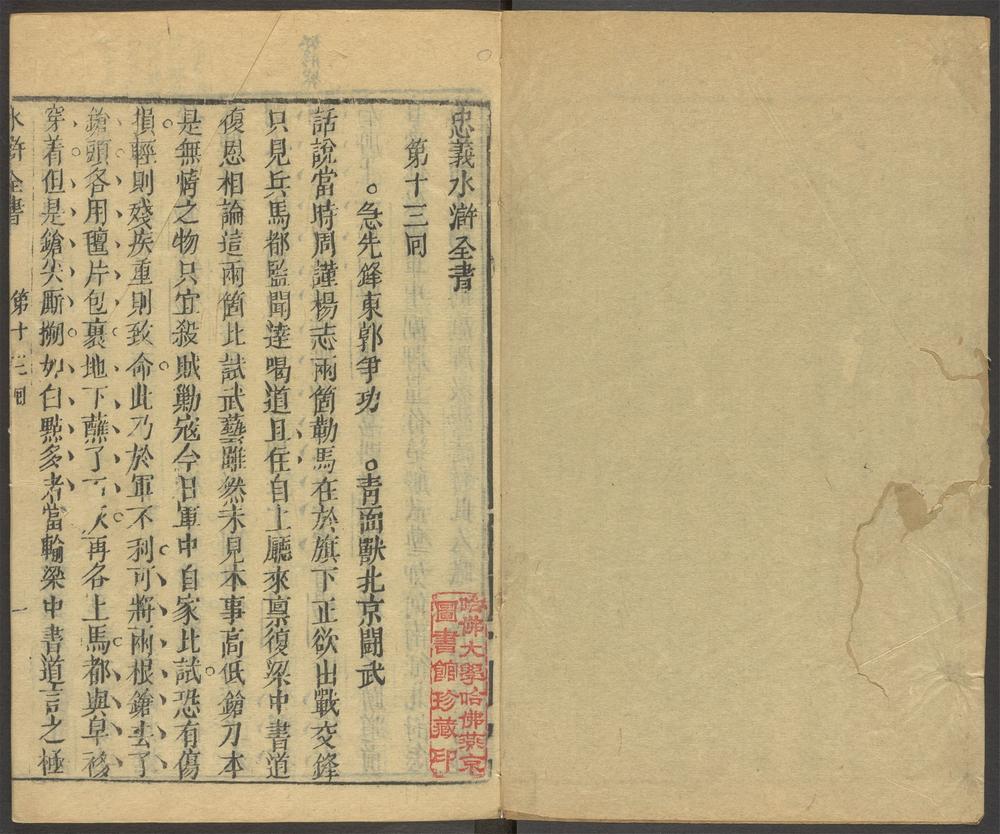 忠義水滸全書
第十三回
急先鋒東郭爭功 青面獸北京鬪武
話說當時周謹楊志兩箇勒馬在於旗下正欲出戰交鋒
只見兵馬都監聞達喝道且住自上廳來禀復梁中書道
復恩相論這兩箇比試武藝雖然未見本事高低鎗刀本
是無情之物只宜殺賊勦寇今日軍中自家比試恐有傷
損輕則殘疾重則致命此乃於軍不利可將兩根鎗去了
鎗頭各用氊片包裹地下蘸了再各上馬都與皁
穿着但是鎗尖厮搠如白點多者當輸梁中書道言之極
水滸全書 第十三回 一
哈佛大學哈佛燕京
圖書館珍藏印